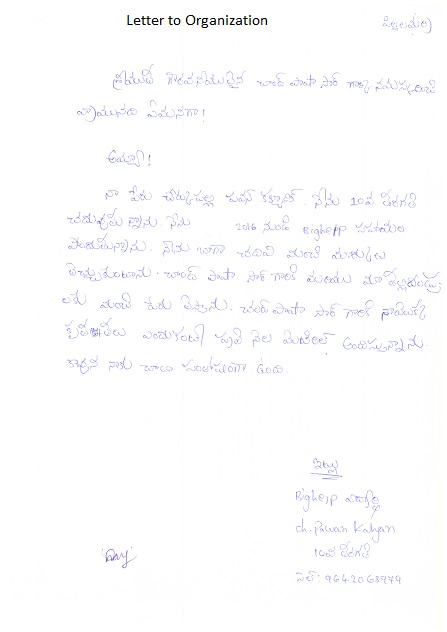 Letter to Organization
పిల్లలమర్రి
శ్రీయుత గౌరవనీయులైన చాంద్ పాషా సార్ గార్కి నమస్కరించి
వ్రాయునది ఏమనగా!
అయ్యా!
నా పేరు చెర్కుపల్లి పవన్ కళ్యాణ్. నేను 10వ తరగతి
చదువుతున్నాను. నేను 2016 నుండి Righelp సహాయం
పొందుతున్నాను. నేను బాగా చదివి మంచి మార్కులు
తెచ్చుకుంటాను. చాంద్ పాషా సార్ గారికి మరియు మా తల్లిదండ్రు
లకు మంచి పేరు తెస్తాను. చాంద్ పాషా సార్ గారికి నాయొక్క
కృతజ్ఞతలు ఎందుకంటే ప్రతి నెల అందిస్తున్నాను.
కావున నాకు చాలా సంతోషంగా ఉంది.
ఇట్లు
Righelp విద్యార్థి
ch. Pawan Kalyan
10వ తరగతి
సెల్: 9642068979